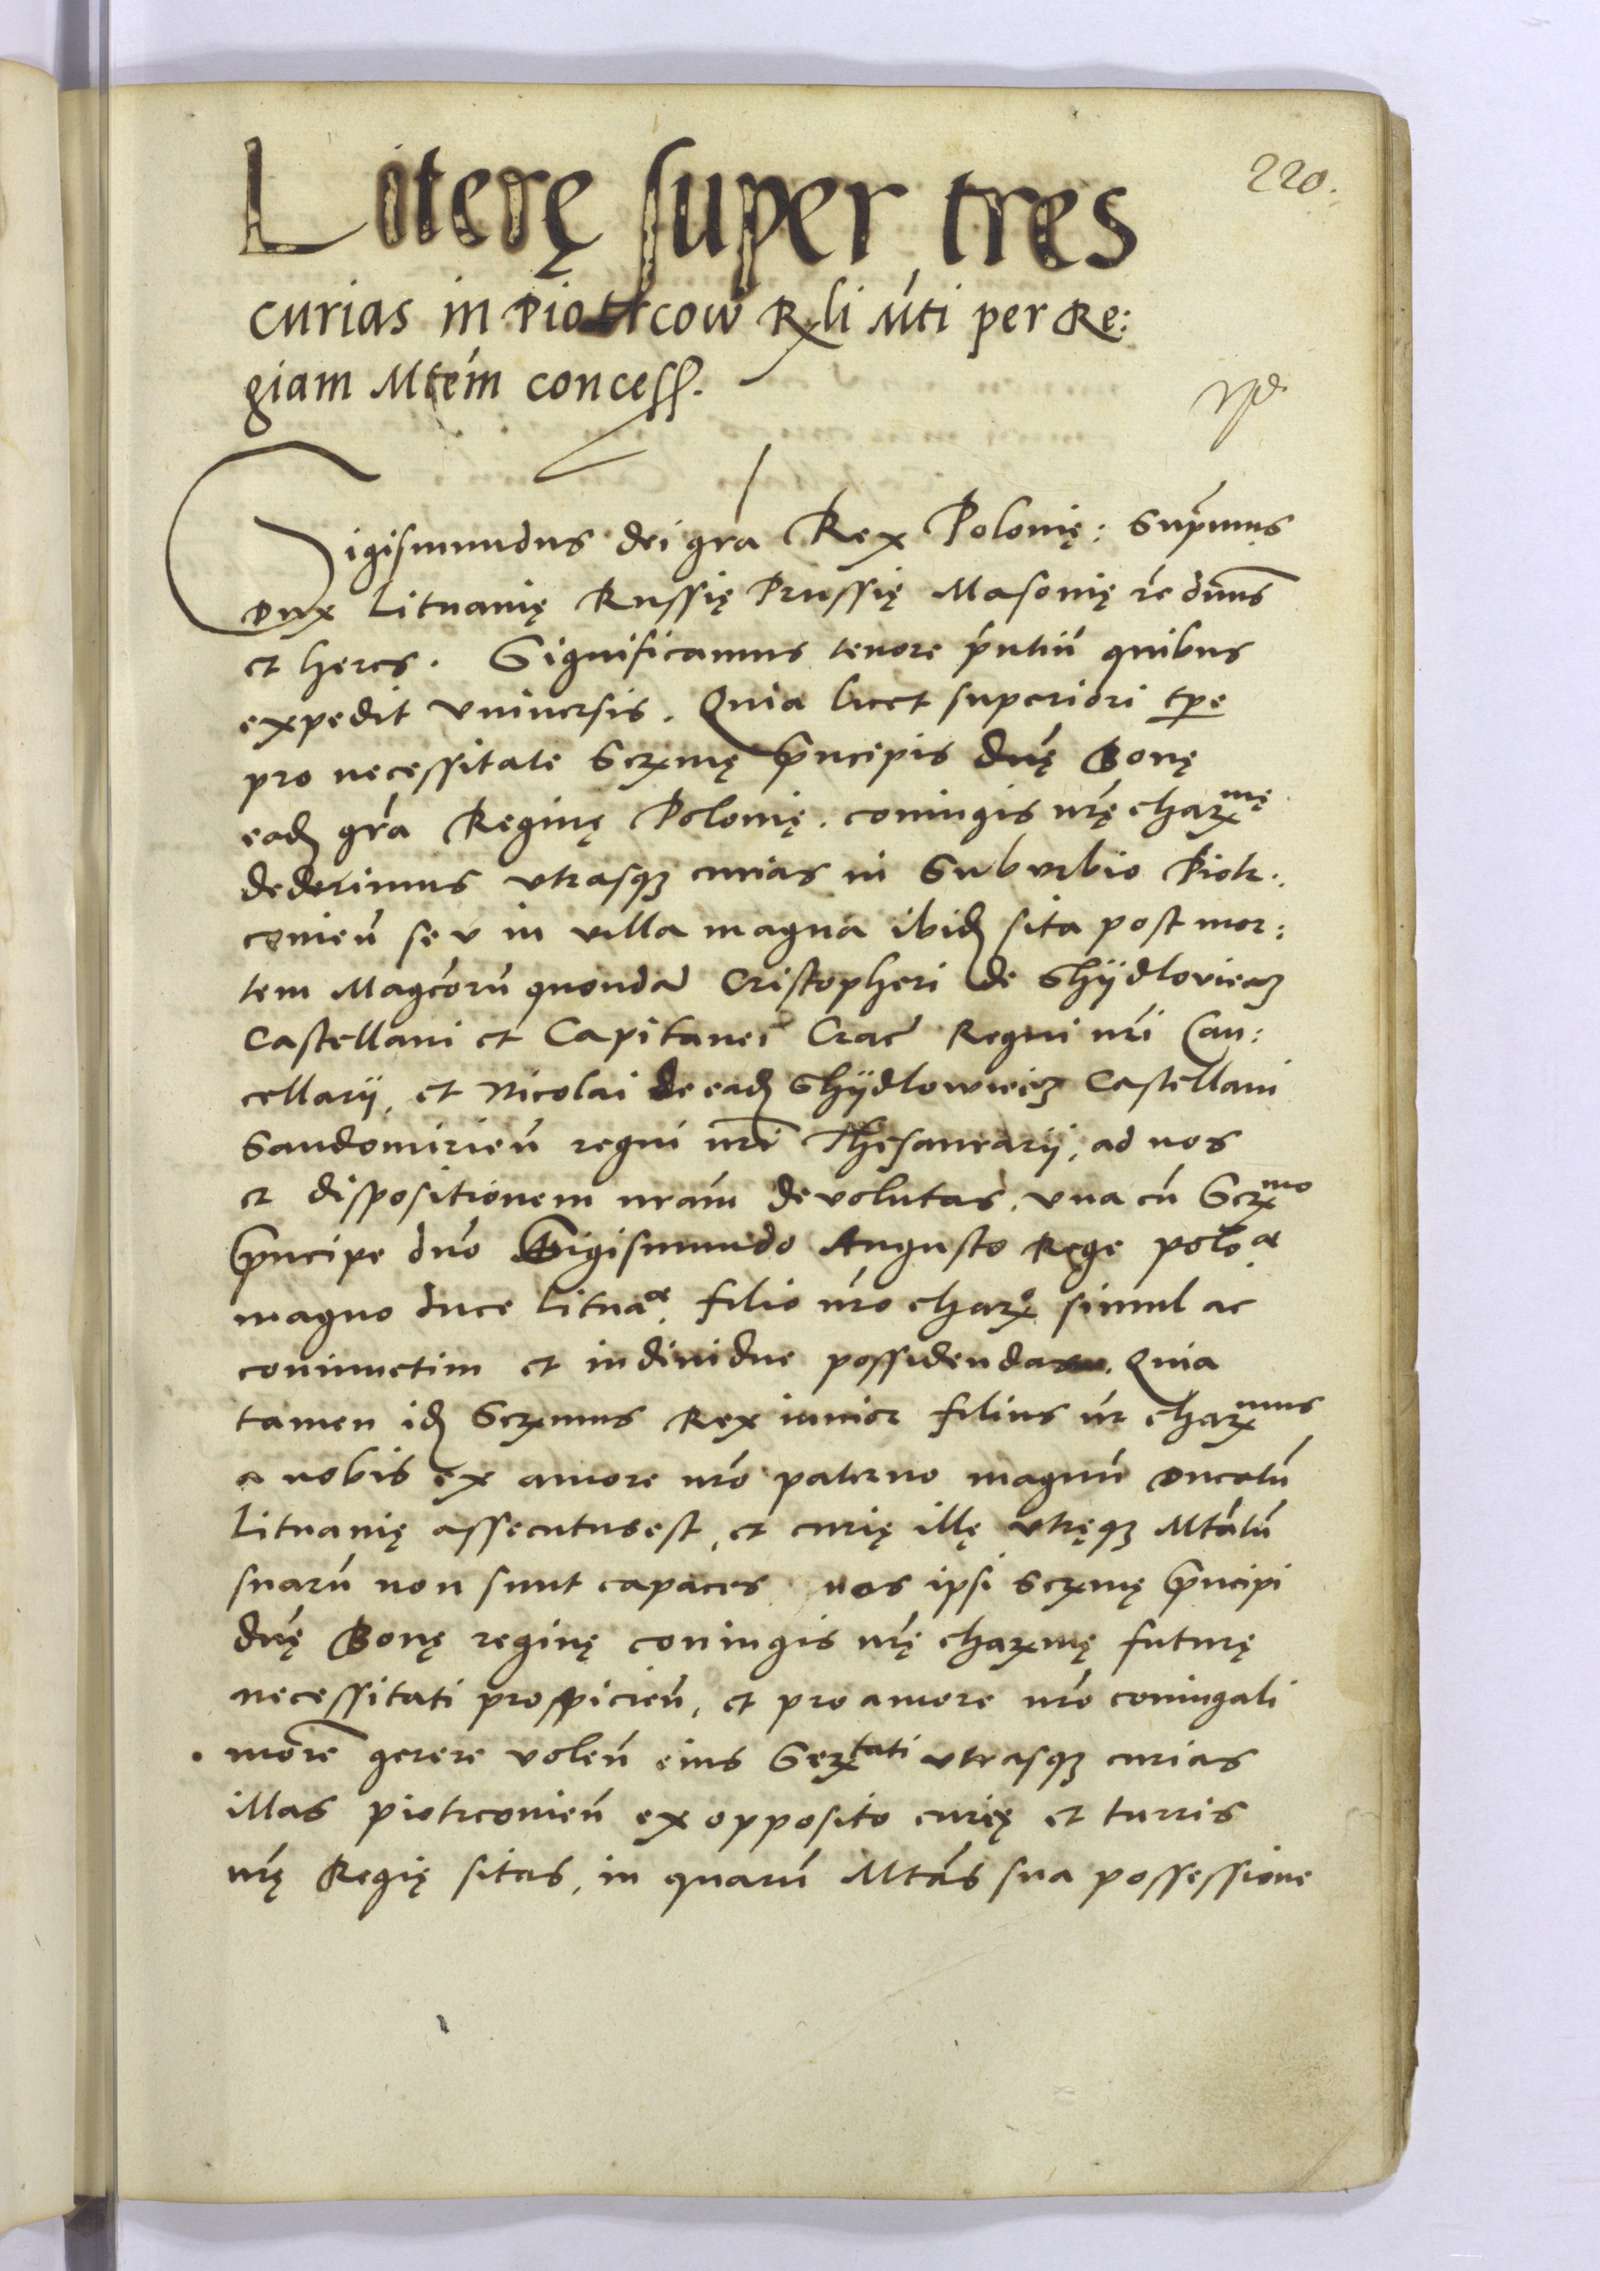 220.
Literę super tres
curias in Piotrcow Rli Mti per Re:
giam Mtem concess.
Sigismundus dei gra Rex Polonię: Supmus
Dux Lituanię Russię Prussię Masonię rc dnus
et heres. Significamus tenore pntiu quibus
expedit vniuersis. Quia licet superiori tpe
pro necessitate Serxmę Principis dnę Bonę
ead gra Reginę Polonię. coniugis nrę charxmę
dederimus vtrasqz curias in Suburbio Piotr:
conien seu in villa magna ibid sita post mor:
tem Magcoru quonda Cristopheri de Shijdloviecz
Castellani et Capitanei Crac Regni nri Can:
cellarij, et Nicolai de ead Shijdlowiecz Castellani
Sandomirien regni nri Thesaurarij, ad nos
et dispositionem nram deuolutas, vna cu Serxmo
Principe dno Sigismundo Augusto Rege polo. ac
magno duce Litua. filio nro charo simul ac
coniunctim et indiuidue possidendas. Quia
tamen id Serxmus Rex iunior filius nr charxmus
a nobis ex amore nro paterno magnu Ducatu
Lituanię assecutus est, et curię illę vtręqz Mtatu
suaru non sunt capaces nos ipsi Serxmę Principi
dnę Bonę reginę coniugis nrę charxmę futurę
necessitati prospicien, et pro amore nro coniugali
more gerere volen eius Serxtati vtrasqz curias
illas piotrconien ex opposito curię et turris
nrę Regię sitas, in quaru Mtas sua possessione